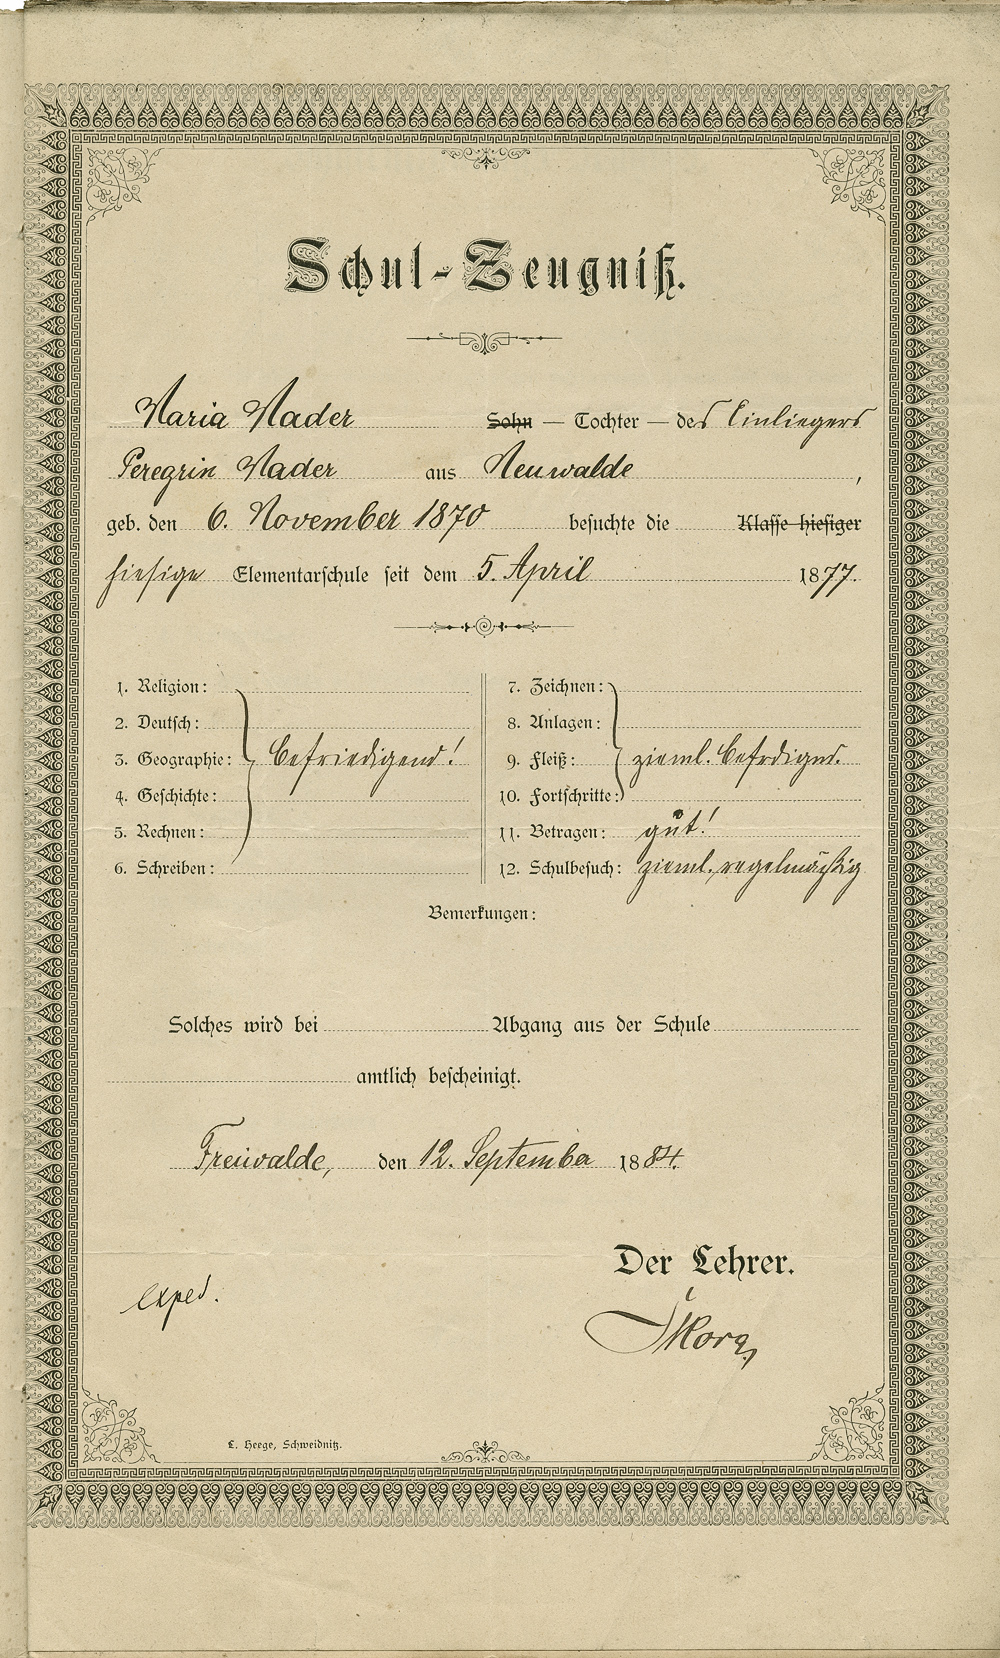 Schul-Zeugniß.
Maria Nader Sohn — Tochter — des Einliegers
Peregrin Nader aus Neuwalde,
geb. den 6. November 1870 besuchte die Klasse hiesiger
hiesige Elementarschule seit dem 5. April 1877.
1. Religion:
2. Deutsch:
3. Geographie: befriedigend!
4. Geschichte:
5. Rechnen:
6. Schreiben:
7. Zeichnen:
8. Anlagen:
9. Fleiß: zieml. befrdigend.
10. Fortschritte:
11. Betragen: gut!
12. Schulbesuch: zieml. regelmäßig
Bemerkungen:
Solches wird bei Abgang aus der Schule
amtlich bescheinigt.
Freiwalde, den 12. September 1884.
Der Lehrer.
exped.
L. Heege, Schweidnitz.